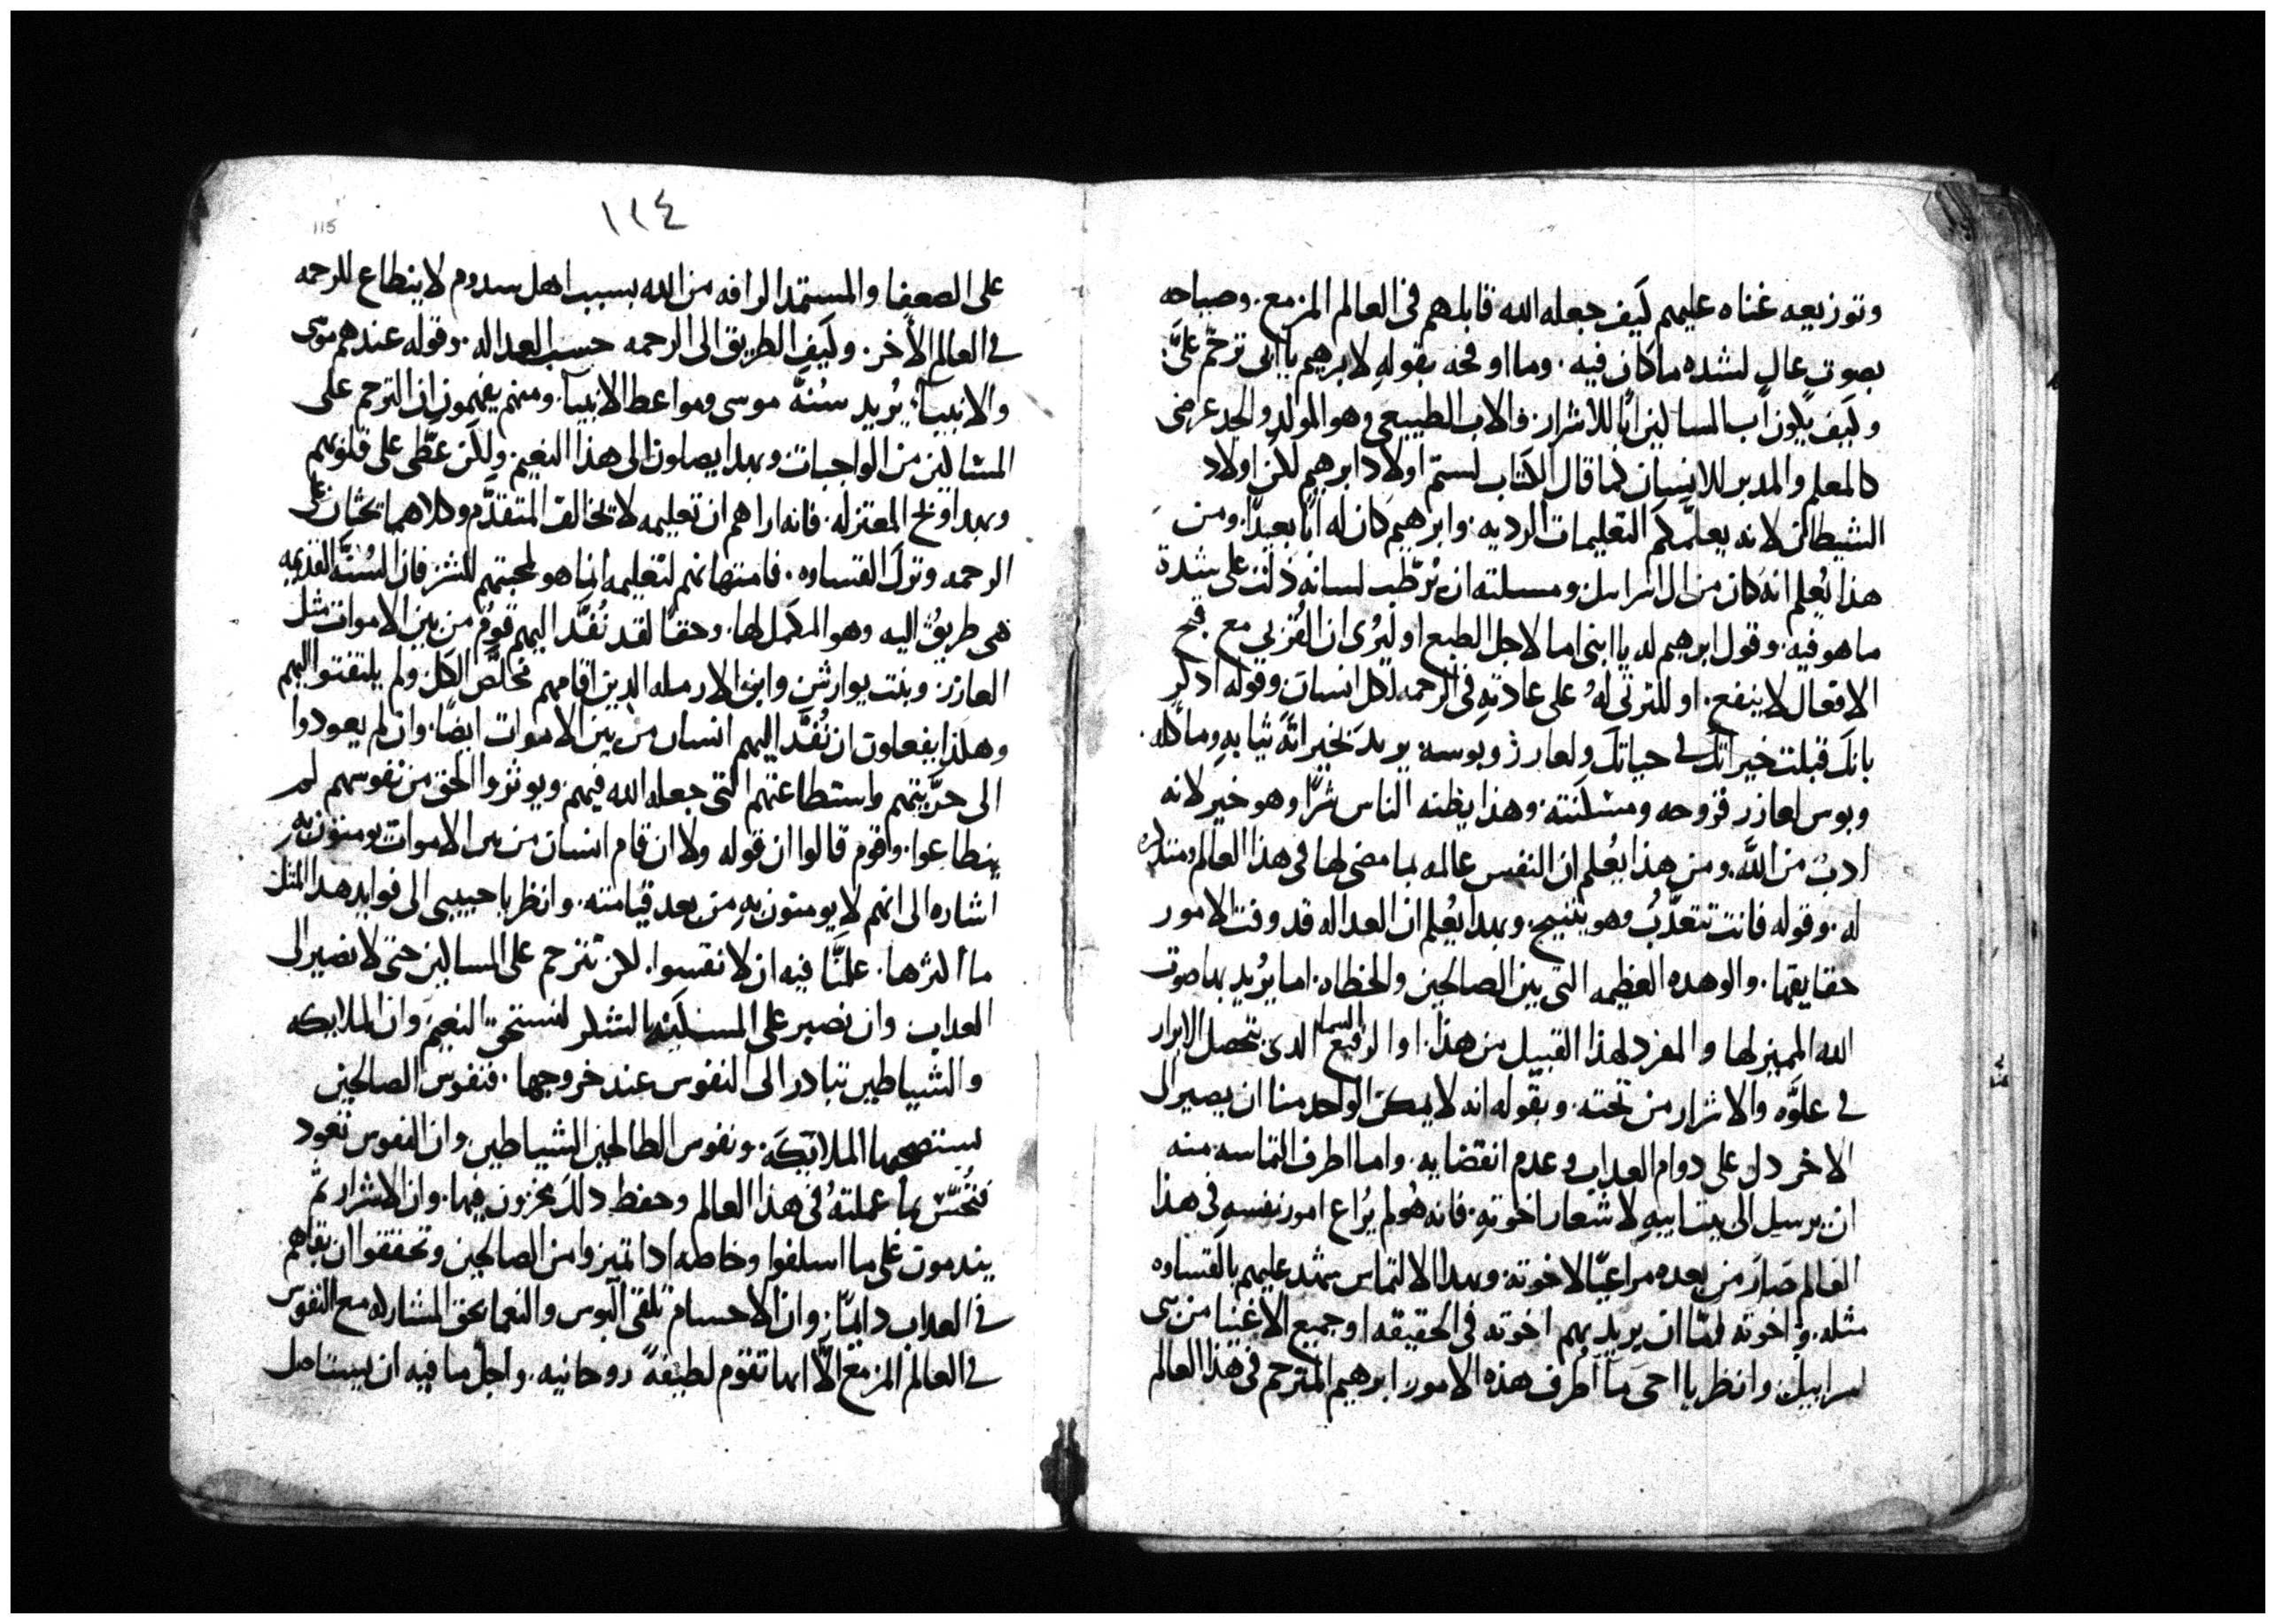 وتوزيعه غناه عليهم كيف جعله الله قابلهم في العالم المزمع. وصياحه
بصوت عال لشده ما كان فيه. وما اوقحه بقوله لابرهيم يا ابى ترحم علىَّ.
وكيف يكون اب المساكين ابًا للاشرار. والاب الطبيعى وهو المولد والجد عرضى
كالمعلم والمدبر للانسان كما قال الكتاب لستم اولاد ابرهيم لكن اولاد
الشيطان لانه يعلمكم التعليمات الرديه. وابرهيم كان له ابًا بعيدًا. ومن
هذا يُعلم انه كان من ال اسرايل ومسلته ان يُرطّب لسانه دلت على شدة
ما هو فيه. وقول ابرهيم له يا ابنى اما لاجل الطبع او ليُرى ان القُربي مع قبح
الافعال لا ينفع. او للترثى لهُ على عادته في الرحمه لكل انسان وقوله ادكر
بانك قبلت خيراتك في حياتك ولعازر وبوسه يريد بخيراته ثيابه وماكله.
وبوس لعازر قروحه ومسكنته. وهذا يظنه الناس شرًا وهو خير لانه
ادبٌ من اللَّه. ومن هذا يُعلم ان النفس عالمه بما مضى لها في هذا العالم ومتذكره
له. وقوله فانت تتعدَّبُ وهو يتنيح. وبهدا يُعلم ان العداله قد وفت الامور
حقايقها. والوهده العظيمه التى بين الصالحين والخطاه. اما يُريد بها صوت
الله المميز لها والمفرد لهذا القبيل من هذا. او الرقيع السما الدى يتحصل الابرار
في علوَّه والاشرار من تحته. وبقوله انه لا يمكن الواحد منا ان يصير الى
الاخر دل على دوام العداب وعدم انقضايه. واما اطرف التماسه منه
ان يرسل الى بيت ابيه لاشعار اخوته. فانه هُو لم يُراع امور نفسه في هذا
العالم صَار من بعده مراعيًا لاخوته. وبهدا الالتماس يشهد عليهم بالقساوه
مثله. واخوته امّا ان يريد بهم اخوته في الحقيقه او جميع الاغنيا من بنى
اسراييل. وانظر يا اخى ما اطرف هذه الامور ابرهيم المترحم في هذا العالم
١١٤
115
على الضعفا والمستمد الرافه من الله بسبب اهل سدوم لا ينطاع للرحمه
في العالم الأخر. وكيف الطريق الى الرحمه حسب العداله. وقوله عندهم موسى
والانبيآء يُريد سُنهَّ موسى ومواعظ الانبيآ. ومنهم يفهمون ان الترحم على
المساكين من الواجبات وبهدا يصلون الى هذا النعيم. ولكن غطّى على قلوبهم
وبهدا وبخ المعتزله. فانه اراهم ان تعليمه لا يخالف المتقدَّم وكلاهما يحثان على
الرحمه وترك القساوه. فامتهانهم لتعليمه انما هو لمحبتهم للشر. فان السُنهَّ القديمه
هى طريقُ اليه وهو المكمل لها. وحقًا لقد نُفَّد اليهم قومُ من بين الاموات مثل
العازر وبنت يوارش وابن الارمله الدين اقامهم مخلَّص الكل ولم يلتفتوا اليهم
وهكذا يفعلون ان نُفَّد اليهم انسان من بين الاموات ايضًا. وان لم يعودوا
الى حرَّيتهم واستطاعتهم التى جعله الله فيهم ويوثروا الحق من نفوسهم لم
ينطاعوا. وقوم قالوا ان قوله ولا ان قام انسان من بين الاموات يومنون به
اشاره الى انهم لا يومنون به من بعد قيامته. وانظر يا حبيبى الى فوايد هدا المثل
ما اكثرها. علمنَّا فيه ان لا نقسوا. لكن نترحم على المساكين حتى لا نصير الى
العداب وان نصبر على المسكنه بالشكر لنستحق النعيم وان الملايكه
والشياطين تبادر الى النفوس عند خروجها. فنفوس الصالحين
يستصحبها الملايكه. ونفوس الطالحين الشياطين. وان النفوس تعود
فتُحسّ بما عملتهُ في هذا العالم وحفظ دلك مخزون فيها. وان الاشرار ثم
يندمون على ما اسلفوا وخاصه ادا تميزوا من الصالحين وتحققوا ان بقاهم
في العداب دايمًا. وان الاجسام تلقى البوس والنعما بحق المشاركه مع النفوس
في العالم المزمع الَّا انها تقوم لطيفةً روحانيه. واجل ما فيه ان يستاصل